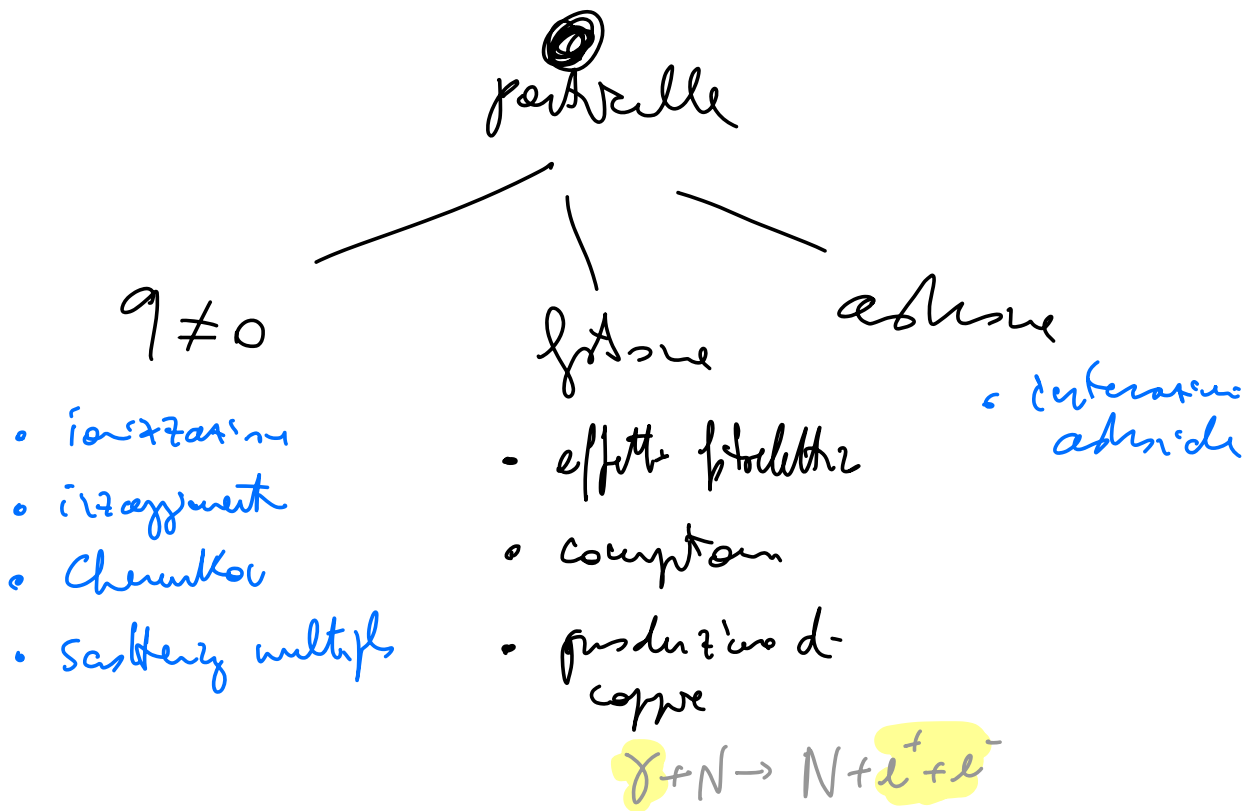 particelle
q ≠ 0
fotone
adrone
• ionizzazione
• irraggiamento
• Cherenkov
• scattering multiplo
• effetto fotoelettrico
• compton
• produzione di
coppie
γ + N → N + e⁺ + e⁻
• interazioni
adroniche